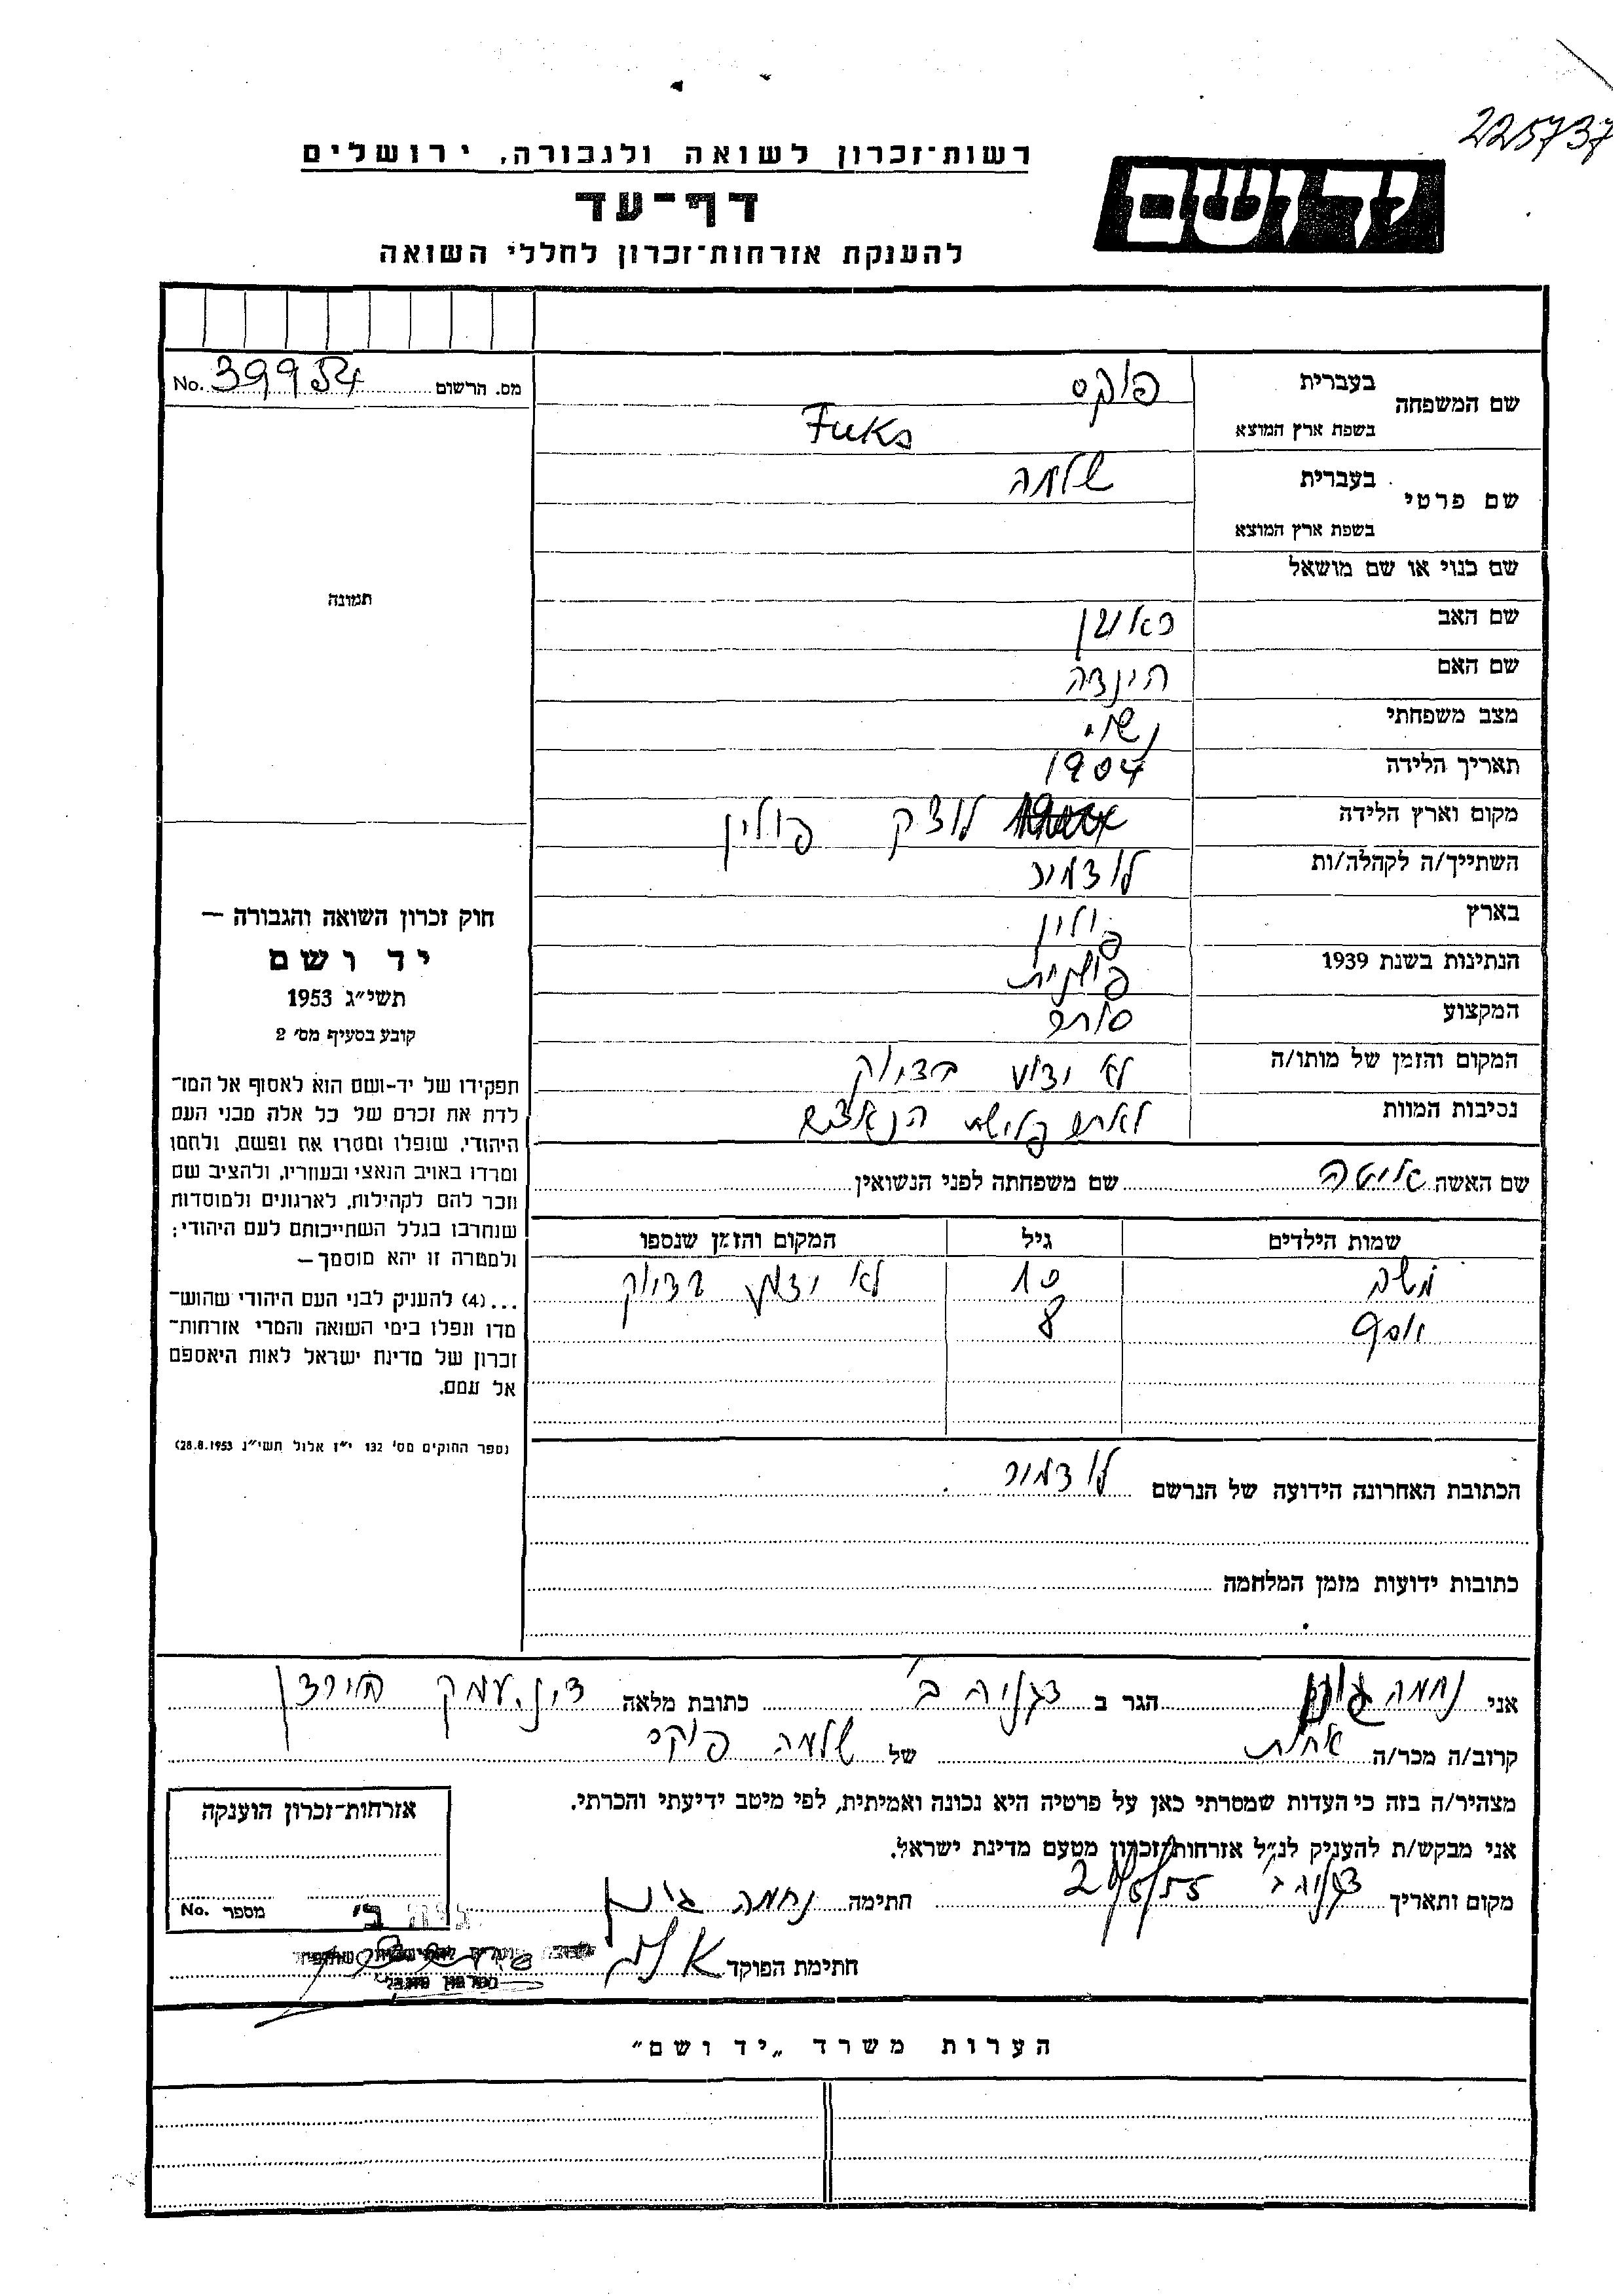 225737
יד ושם
רשות־זכרון לשואה ולגבורה, ירושלים
דף־עד
להענקת אזרחות־זכרון לחללי השואה
מס. הרשום 39954 No.
שם המשפחה בעברית פוקס
בשפת ארץ המוצא Fuks
שם פרטי בעברית שלמה
בשפת ארץ המוצא
שם כנוי או שם מושאל
תמונה
שם האב
שם האם הינדה
מצב משפחתי נשוי
תאריך הלידה 1904
מקום וארץ הלידה לוצק פולין
השתייך/ה לקהלה/ות לודמיר
בארץ פולין
הנתינות בשנת 1939 פולנית
המקצוע סוחר
המקום והזמן של מותו/ה לא ידוע בדיוק
נסיבות המוות לאחר פלישת הנאצים
שם האשה איטה שם משפחתה לפני הנשואין
שמות הילדים גיל המקום והזמן שנספו
משה 10 לא ידוע בדיוק
יוסף 8
הכתובת האחרונה הידועה של הנרשם לודמיר
כתובות ידועות מזמן המלחמה
חוק זכרון השואה והגבורה —
יד ושם
תשי״ג 1953
קובע בסעיף מס׳ 2
תפקידו של יד־ושם הוא לאסוף אל המו־
לדת את זכרם של כל אלה מבני העם
היהודי, שנפלו ומסרו את נפשם, ולחמו
ומרדו באויב הנאצי ובעוזריו, ולהציב שם
וזכר להם לקהילות, לארגונים ולמוסדות
שנחרבו בגלל השתייכותם לעם היהודי;
ולמטרה זו יהא מוסמך —
...(4) להעניק לבני העם היהודי שהוש־
מדו ונפלו בימי השואה והמרי אזרחות־
זכרון של מדינת ישראל לאות היאספם
אל עמם.
(ספר החוקים מס׳ 132 י״ז אלול תשי״ג 28.8.1953)
אני נחמה הגר ב דגניה ב׳ כתובת מלאה ד.נ. עמק הירדן
קרוב/ה מכר/ה אחות של שלמה פוקס
מצהיר/ה בזה כי העדות שמסרתי כאן על פרטיה היא נכונה ואמיתית, לפי מיטב ידיעתי והכרתי.
אני מבקש/ת להעניק לנ״ל אזרחות־זכרון מטעם מדינת ישראל.
מקום ותאריך דגניה ב׳ חתימה נחמה
חתימת הפוקד
אזרחות־זכרון הוענקה
מספר No.
הערות משרד „יד ושם״